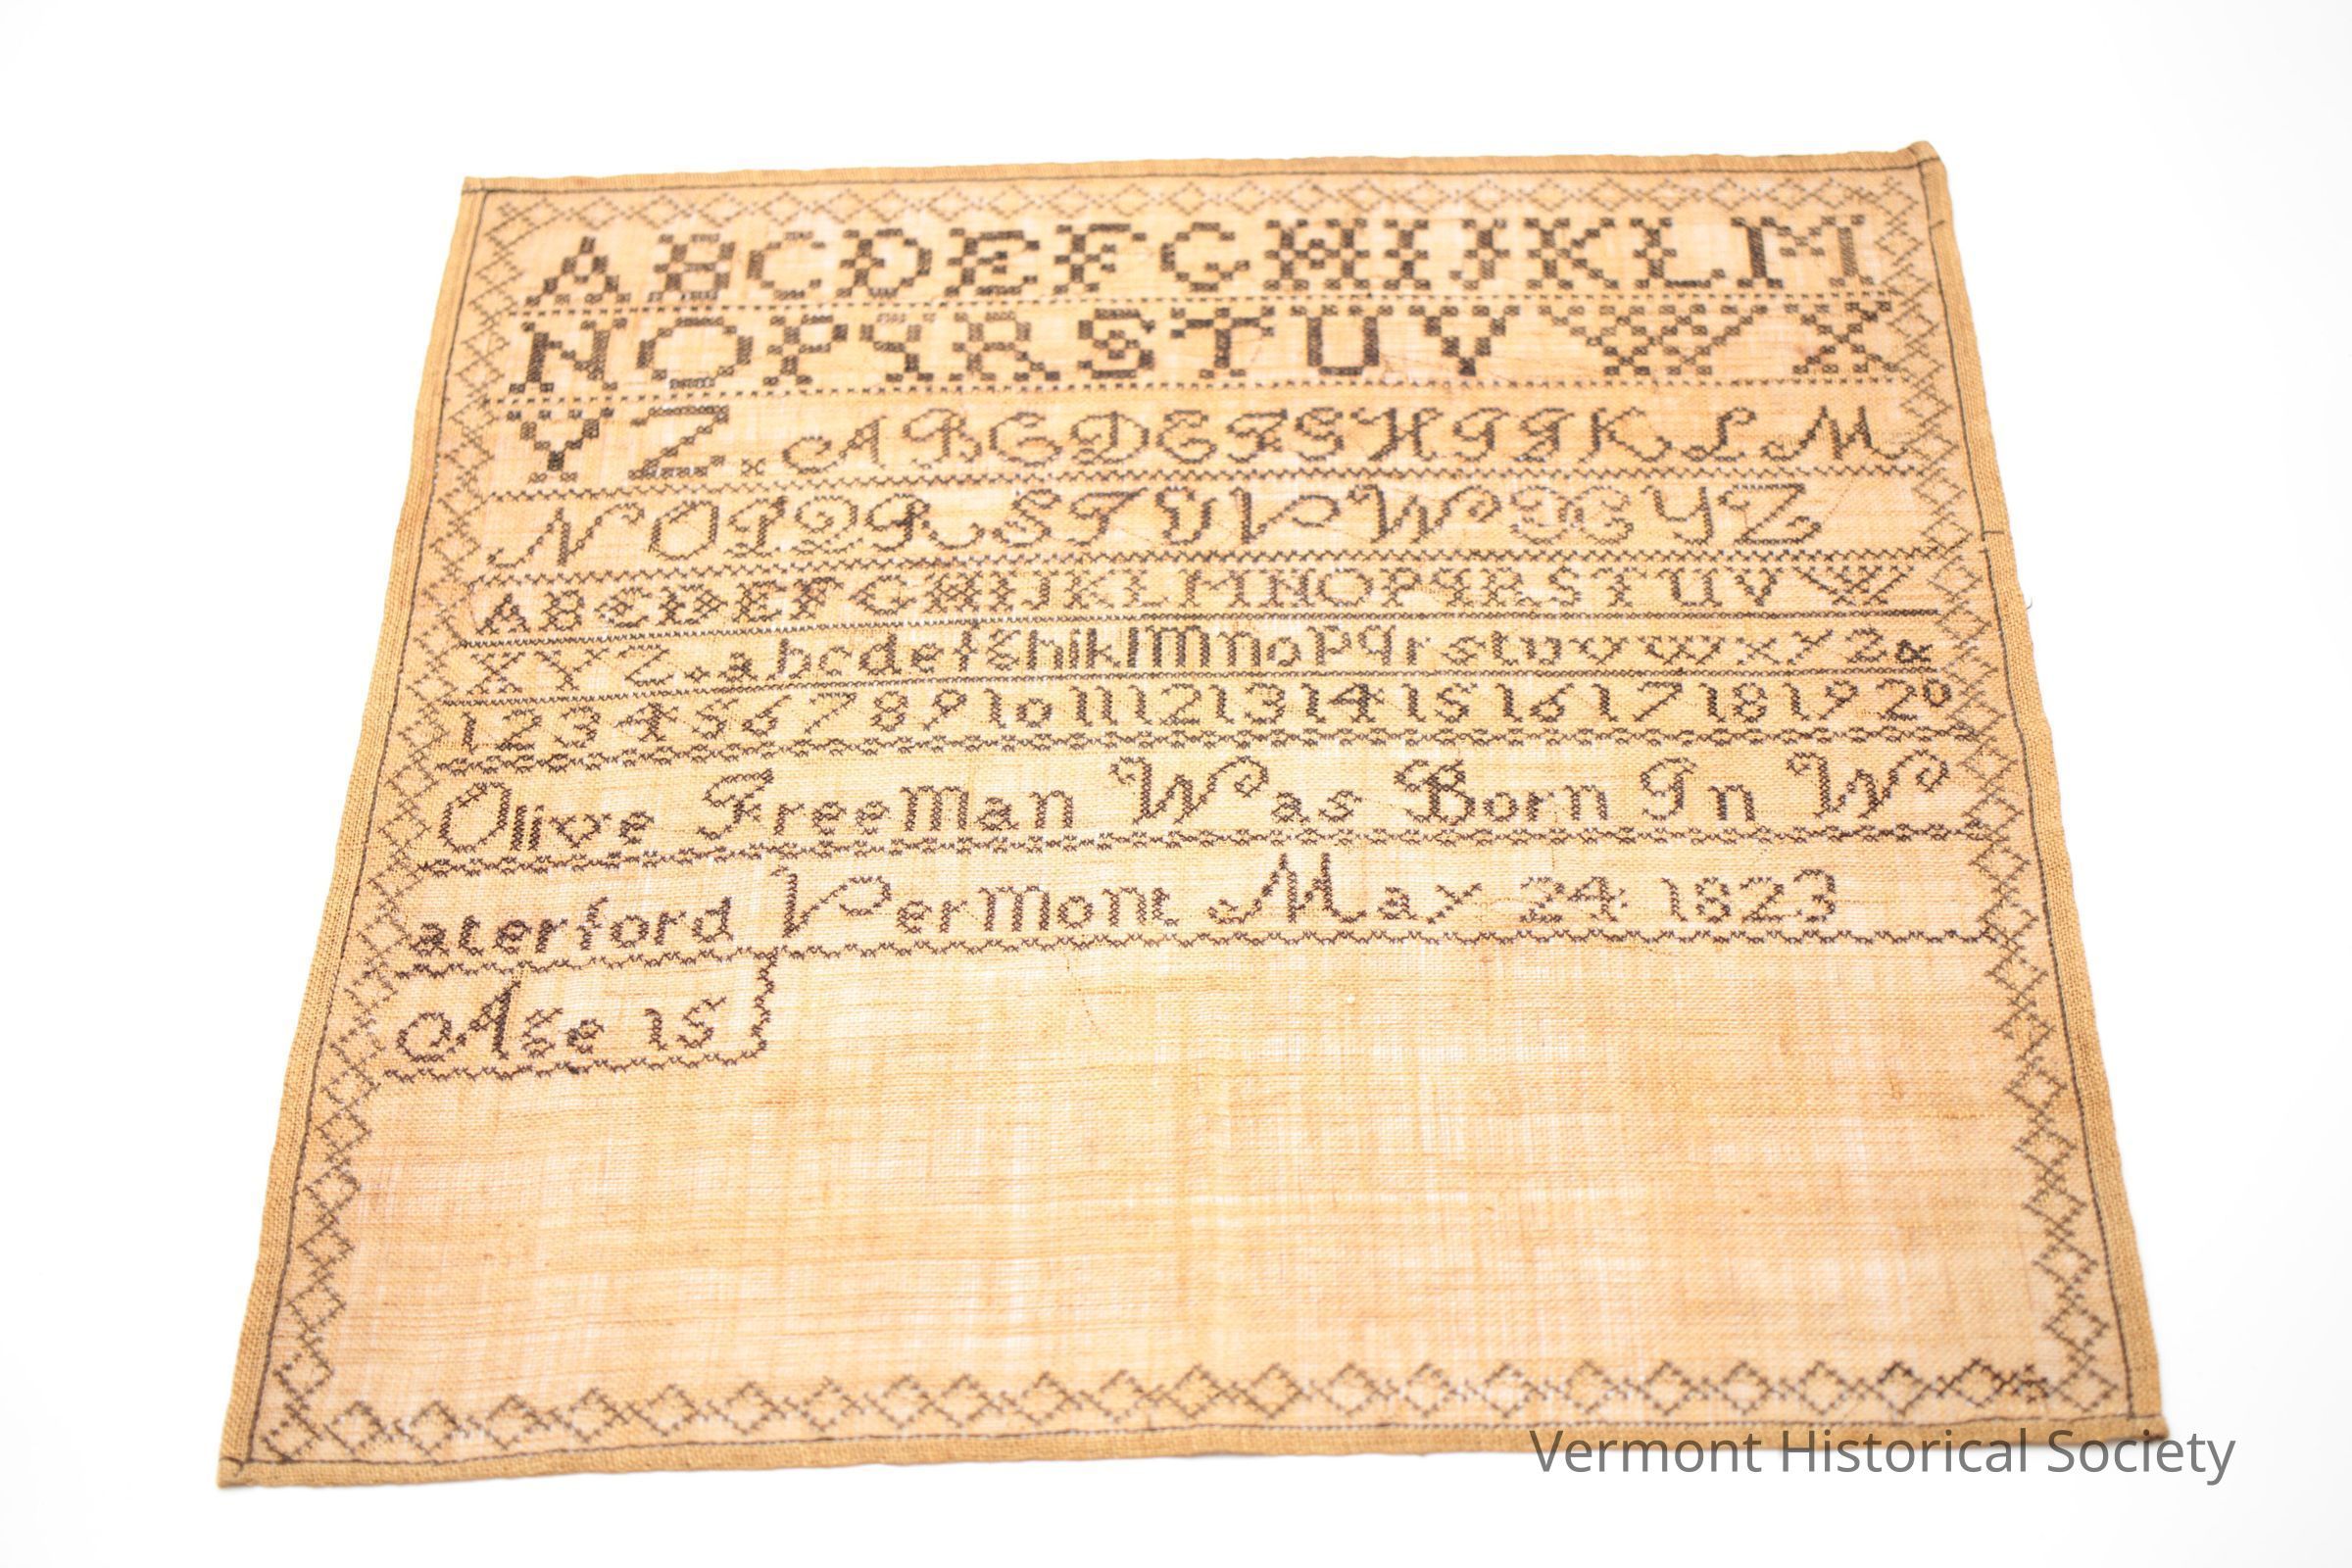 A B C D E F G H I J K L M
N O P Q R S T U V W X
Y Z . A B C D E F G H I J K L M
N O P Q R S T U V W X Y Z
A B C D E F G H I J K L M N O P Q R S T U V W
X Y Z . a b c d e f g h i k l m n o p q r s t u v w x y z R
1 2 3 4 5 6 7 8 9 10 11 12 13 14 15 16 17 18 19 20
Olive Freeman Was Born In W
aterford Vermont May 24 1823
Age 15
Vermont Historical Society